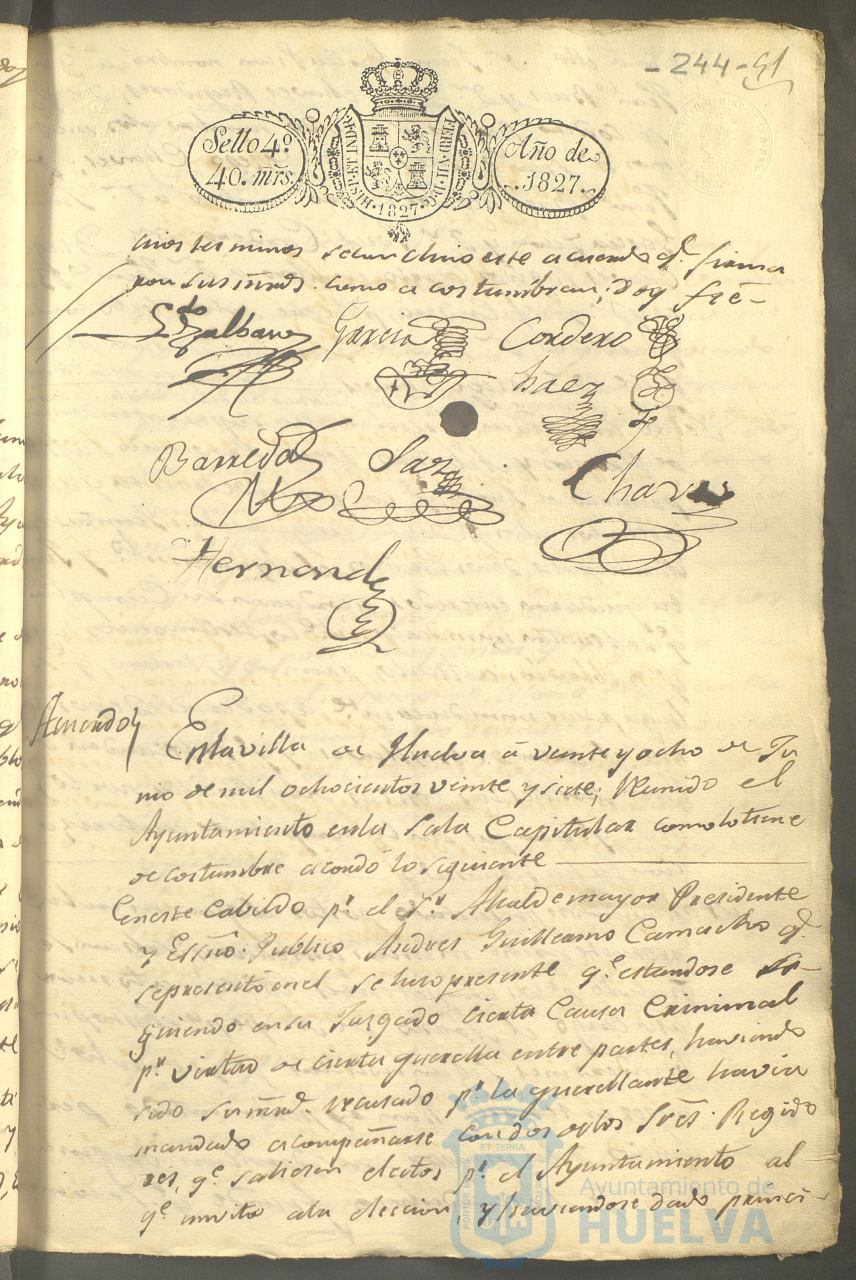 - 244 - 91
Sello 4º
40. mrs.
HISP. ET IND. R.
FERD. VII. D. G.
1827
Año de
1827.
terminos se concluio este acuerdo qe. firma
ron sus mrds. como acostumbran; doy feé-
Garcia Cordero
Baez
Barreda Saz Chaves
Hernandz
Acuerdo
Enla villa de Huelva á veinte y ocho de Ju
nio de mil ochocientos veinte y siete; Reunido el
Ayuntamiento enla Sala Capitular como lo tiene
de costumbre acordó lo siguiente
En este Cabildo pr. el Sr. Alcalde mayor Presidente
y Essno. Publico Andres Guillermo Camacho qe.
se presentó en el se hizo presente qe. estandose si-
guiendo en su Juzgado cierta Causa Criminal
pr. virtud de cierta querella entre partes, haviendo
sido su mrd. recusado pr. la querellante havia
mandado acompañarse con dos delos Sres. Regido
res, qe. saliesen electos pr. el Ayuntamiento al
qe. invita ala eleccion, y haviendose dado princi-
ET TERRA
Ayuntamiento de
HUELVA